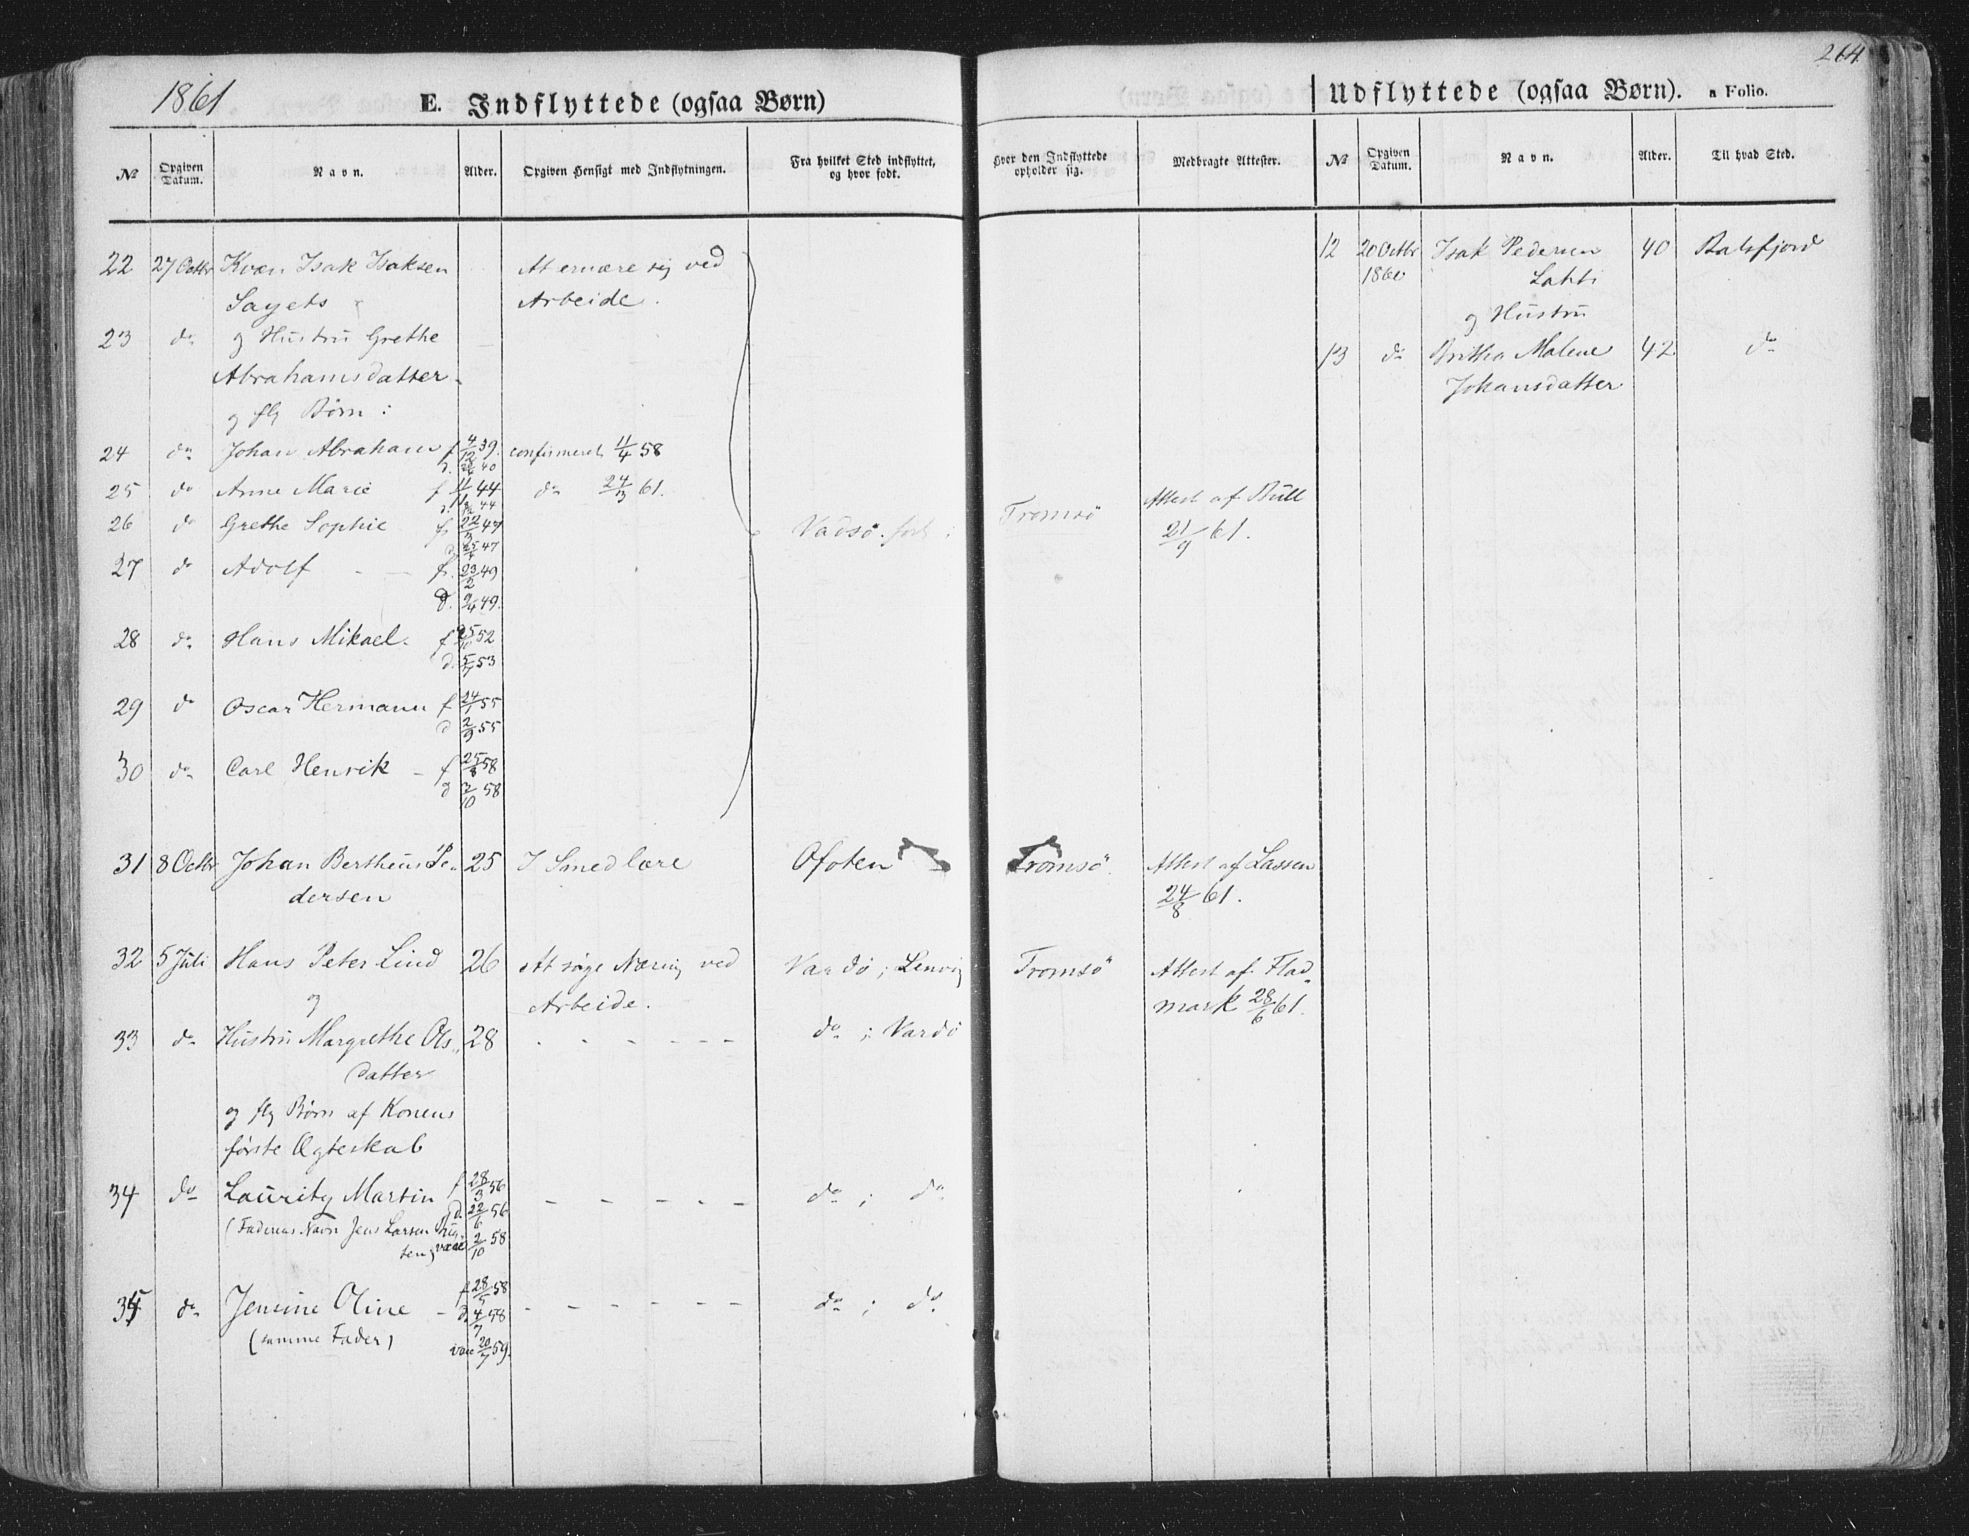 1861
E. Indflyttede (ogsaa Børn)
№ Opgiven Datum. Navn. Alder. Opgiven Hensigt med Indflytningen. Fra hvilket Sted indflyttet, og hvor født.
22 27 Octbr Kvæn Isak Isaksen At ernære sig ved
Sayets Arbeide.
23 do og Hustru Grethe
Abrahamsdatter
og flg Børn:
24 do Johan Abraham f 4/12 39. confirmeret 11/4 58
25 do Anne Marie f 44 do 24/3 61.
26 do Grethe Sophie f. 22/3 47 Vadsø. født
d. 25/4 47
27 do Adolf - - f. 23/2 49
d. 9/4 49.
28 do Hans Mikael. f 52
d. 53
29 do Oscar Hermann f 24/1 55
d 2/9 55
30 do Carl Henrik - f 25/8 58
d 3/10 58
31 8 Octbr Johan Bertheus Pe- 25 I Smedlære Ofoten
dersen
32 5 Juli Hans Peter Lind 26 At søge Næring ved Vardø; Lenvig
og Arbeide.
33 do Hustru Margrethe Ols- 28 - - - - - - do ; Vardø
datter
og flg Børn af Konens
første Ægteskab
34 do Lauritz Martin f 28/3 56 - - - - - do ; do
d. 22/6 56
(Faderens Navn Jens Larsen
2/10 58
35 do Jensine Oline - f 28/5 58 - - - - - - do ; do
d. 4/7 58
(samme Fader)
vac 20/7 59.
264
Udflyttede (ogsaa Børn). a Folio.
hvor den Indflyttede opholder sig. Medbragte Attester. № Opgiven Datum. Navn. Alder. Til hvad Sted.
12 20 Octbr Isak Pedersen 40 Balsfjord
1860 Lahti
og Hustru
13 do Britha Malene 42 do
Johansdatter
Tromsø Attest af Bull
21/9 61.
Tromsø. Attest af Lassen
24/8 61.
Tromsø Attest af Flad-
mark 28/6 61.